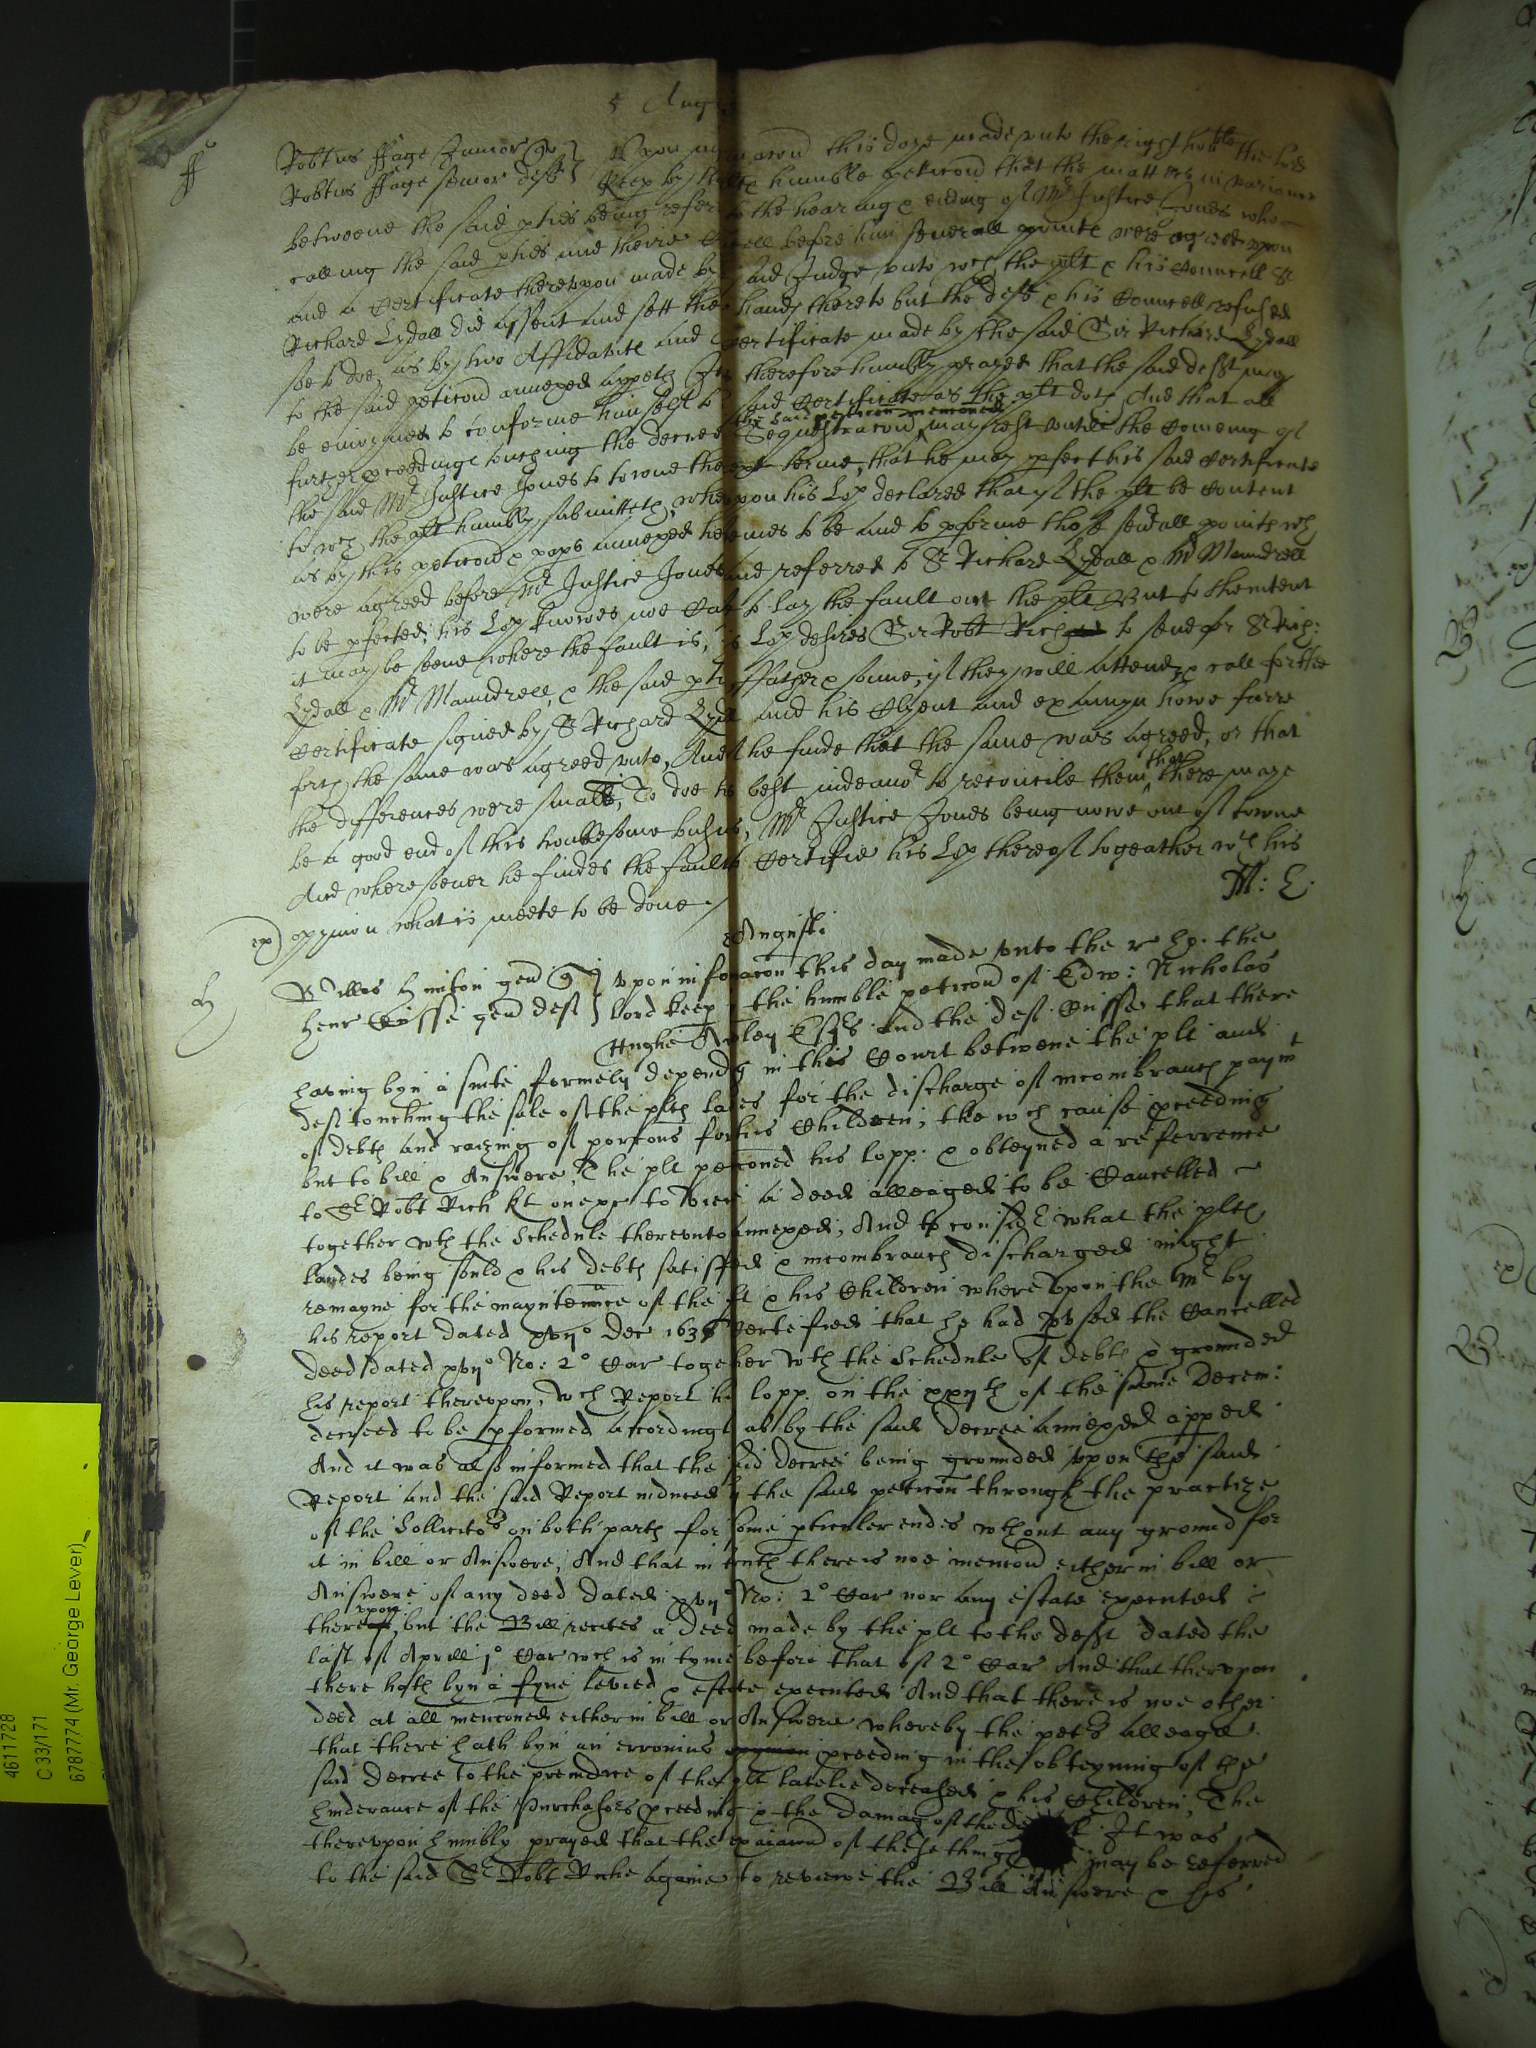 5 Aug
ff
Robtus ffage Junior Quer } Upon informacon this daye made unto the right hoble the Lord
Robtus ffage senior deft } Keep by the plts humble peticon that the matters in variance
betweene the said pties being referred to the hearing & ending of Mr Justice Jones who
calling the said pties and theire Councell before him severall points were agreed upon
and a Certificate thereupon made by the said Judge unto wch the plt & his Councell Sr
Richard Lydall did assent and sett their hands thereto but the deft & his Councell refused
soe to doe, as by two Affidavits and Certificate made by the said Sir Richard Lydall
to the said peticon annexed appeth It was therefore humbly prayed that the said deft may
be enioyned to conforme himself to the said Certificate as the plt doth And that all
further pceedings touching the decree & Sequestracon the said peticon menconed may rest untill the Comeing of
the said Mr Justice Jones to towne the next terme, that he may pfect his said Certificate
to wch the plt humbly submitteth, whereupon his Lop declared that if the plt be Content
as by this peticon & paps annexed he seemes to be and to pforme those sevall points wch
were agreed before Mr Justice Jones and referred to Sr Richard Lydall & Mr Maundrell
to be pfected, his Lop knowes noe Cause to lay the fault on the plt But to thentent
it may be seene where the fault is, his Lop desires Sir Robt Rich to send for Sr Rich:
Lydall & Mr Maundrell, & the said pties ffather & sonne, if they will attend, & call for the
Certificate signed by Sr Richard Lydall and his Clyent and examyn howe farre
forth the same was agreed unto, And if he finde that the same was agreed, or that
the differences were small, To doe his best indeavor to reconcile them that there maye
be a good end of this troublesome busines, Mr Justice Jones being nowe out of towne
And wheresoever he findes the fault to Certifie his Lop thereof togeather wth his
ex) opynion what is meete to be done /
M: E:
Augusti
H
Willus Hinton gen Q } Upon informacon this day made unto the r ho: the
Henr Cusse gen deft } Lord keep by the humble peticon of Edw: Nicholas
Hughe Esqrs and the deft Cusse that there
having byn a suite formely depending in this Court betwene the plt and
deft touching the sale of the plts landes for the discharge of incombrances paymt
of debts and raising of porcons for his Children, the wch cause pceeding
but to bill & Answere, The plt peticoned his lopp: & obteyned a referrence
to Sr Robt Rich kt one &c to veiw a deed alleaged to be Cancelled
together wth the Schedule thereunto annexed, And to considr what the plts
landes being sould & his debts satisfied & incombrances discharged might
remayne for the mayntenance of the plt & his Children whereupon the Mr by
his report dated xvijo Dec 1636 Certefied that he had pused the Cancelled
deed dated xvijo No: 2o Car together wth the Schedule of debts & grounded
his report thereupon, wch Report his lopp. on the xxijth of the same Decem:
decreed to be pformed accordingly as by the said decree annexed apped
And it was also informed that the said decree being grounded upon the said
Report and the said Report induced by the said peticon through the practize
of the Sollicitors on both parts for some pticuler endes wthout any ground for
it in bill or Answere, And that in truth there is noe mencon either in bill or
Answere of any deed dated xvijo No: 2o Car nor any estate executed
thereupon, but the Bill recites a deed made by the plt to the deft dated the
last of Aprill 1o Car wch is in tyme before that of 2o Car And that thereupon
there hath byn a fyne levied & estate executed And that there is noe other
deed at all menconed either in bill or Answere whereby the petrs alleage
that there hath byn an erronius pceeding in the obteyning of the
said decree to the preiudice of the plt latelie deceased & his Children, The
hinderance of the Purchasors pceeding & the damage of the deft It was
thereupon humbly prayed that the exaiacon of these things may be referred
to the said Sr Robt Riche againe to reveiwe the Bill Answere & his
4611728
C 33/171
6787774 (Mr. George Lever)